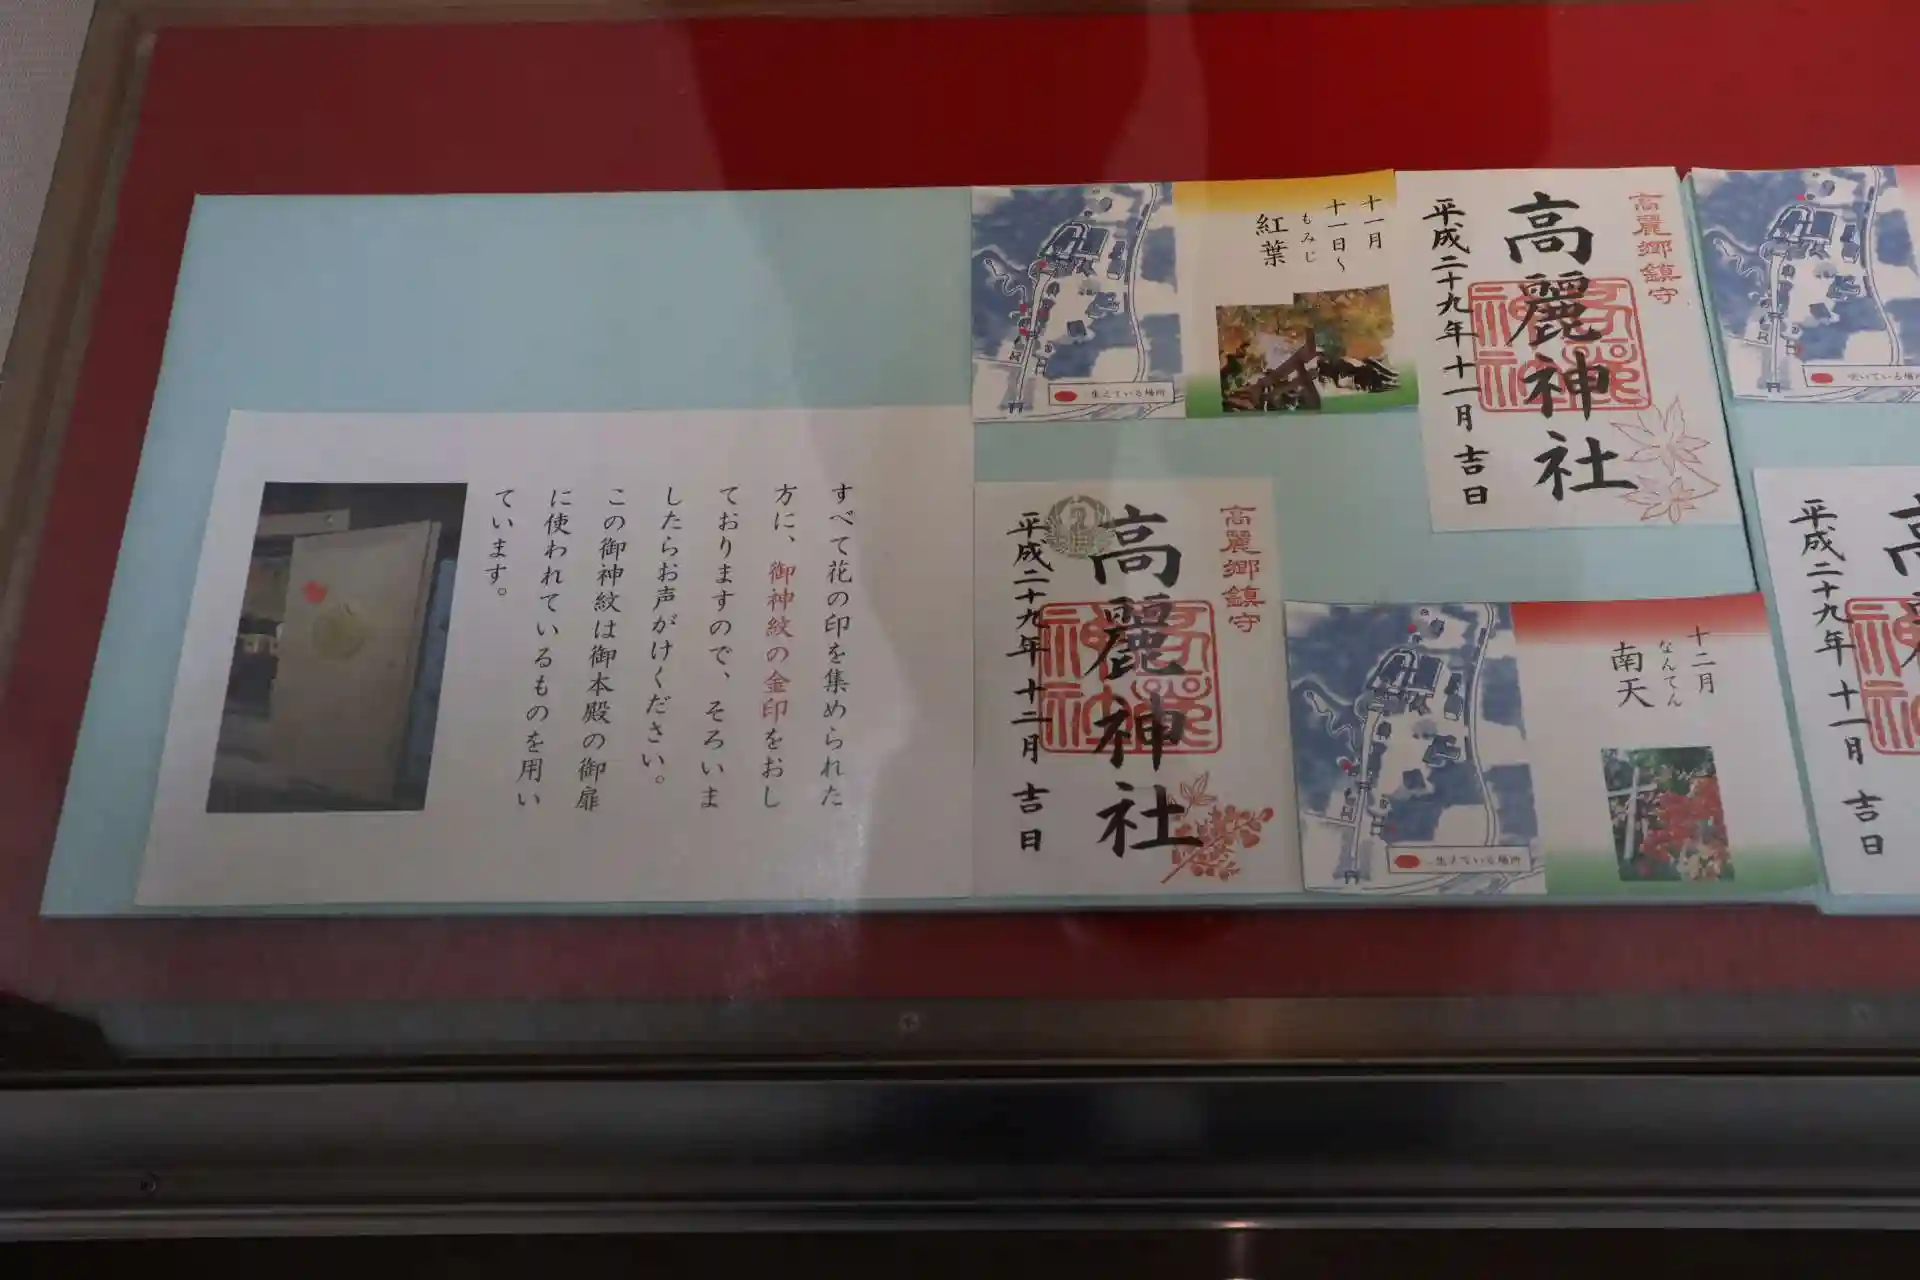 すべて花の印を集められた
方に、御神紋の金印をおし
ておりますので、そろいま
したらお声がけください。
この御神紋は御本殿の御扉
に使われているものを用い
ています。
十一月
十一日〜
もみじ
紅葉
生えている場所
高麗郷鎮守
高麗神社
平成二十九年十一月吉日
高麗郷鎮守
高麗神社
平成二十九年十二月吉日
十二月
なんてん
南天
生えている場所
咲いている場所
平成二十九年十一月吉日